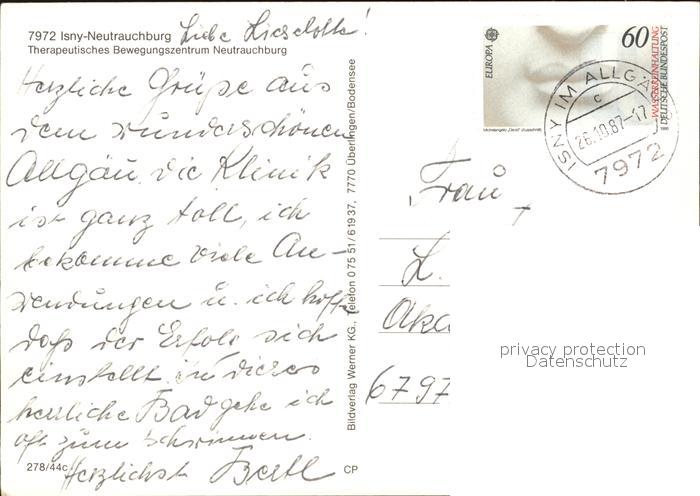 7972 Isny-Neutrauchburg
Therapeutisches Bewegungszentrum Neutrauchburg
Liebe Lieselotte!
Herzliche Grüße aus
dem wunderschönen
Allgäu. Die Klinik
ist ganz toll, ich
bekomme viele An-
wendungen u. ich hoffe
daß der Erfolg sich
einstellt. in dieses
herrliche Bad gehe ich
oft zum schwimmen.
Herzlichst Bertl
278/44c
CP
Bildverlag Werner KG., Telefon 0 75 51/6 19 37, 7770 Überlingen/Bodensee
EUROPA
60
WASSERREINHALTUNG
DEUTSCHE BUNDESPOST
1986
Michelangelo „David“ (Ausschnitt)
ISNY IM ALLGÄ
c
26.10.87-17
7972
Frau
L.
Aka
6797
privacy protection
Datenschutz